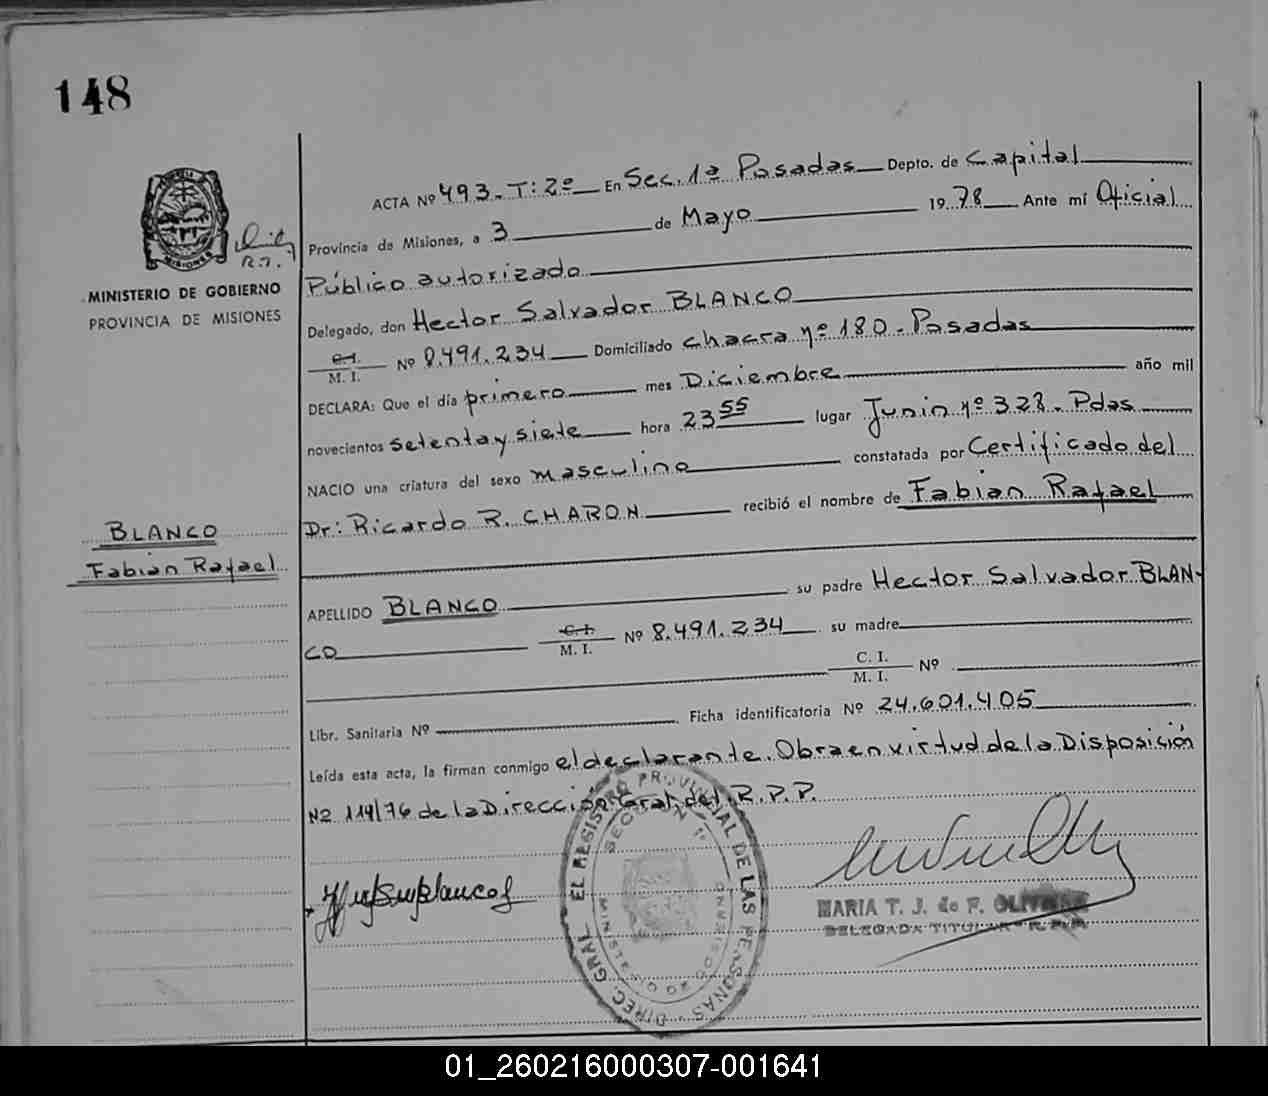 148
ACTA Nº 493. T: 2º En Sec. 1ª Posadas Depto. de Capital
Provincia de Misiones, a 3 de Mayo 1978 Ante mí Oficial
Público autorizado
R.P.
MISIONES
MINISTERIO DE GOBIERNO
PROVINCIA DE MISIONES
Delegado, don Hector Salvador BLANCO
C.I. M. I. Nº 8.491.234 Domiciliado chacra nº 180. Posadas
DECLARA: Que el día primero mes Diciembre año mil
novecientos setenta y siete hora 23 55 lugar Junin nº 328. Pdas
NACIO una criatura del sexo masculino constatada por Certificado del
Dr: Ricardo R. CHARON recibió el nombre de Fabian Rafael
BLANCO
Fabian Rafael
APELLIDO BLANCO su padre Hector Salvador BLAN-
CO C. I. M. I. Nº 8.491.234 su madre
C. I. M. I. Nº
Libr. Sanitaria Nº Ficha identificatoria Nº 24.601.405
Leída esta acta, la firman conmigo el declarante. Obra en virtud de la Disposición
Nº 114/76 de la Dirección Gral. del R.P.P.
DIREC. GRAL. EL REGISTRO PROVINCIAL DE LAS PERSONAS
SECCION 1ª
MINISTERIO DE GOBIERNO
MARIA T. J. de F.
DELEGADA TITULAR R.P.P.
01_260216000307-001641